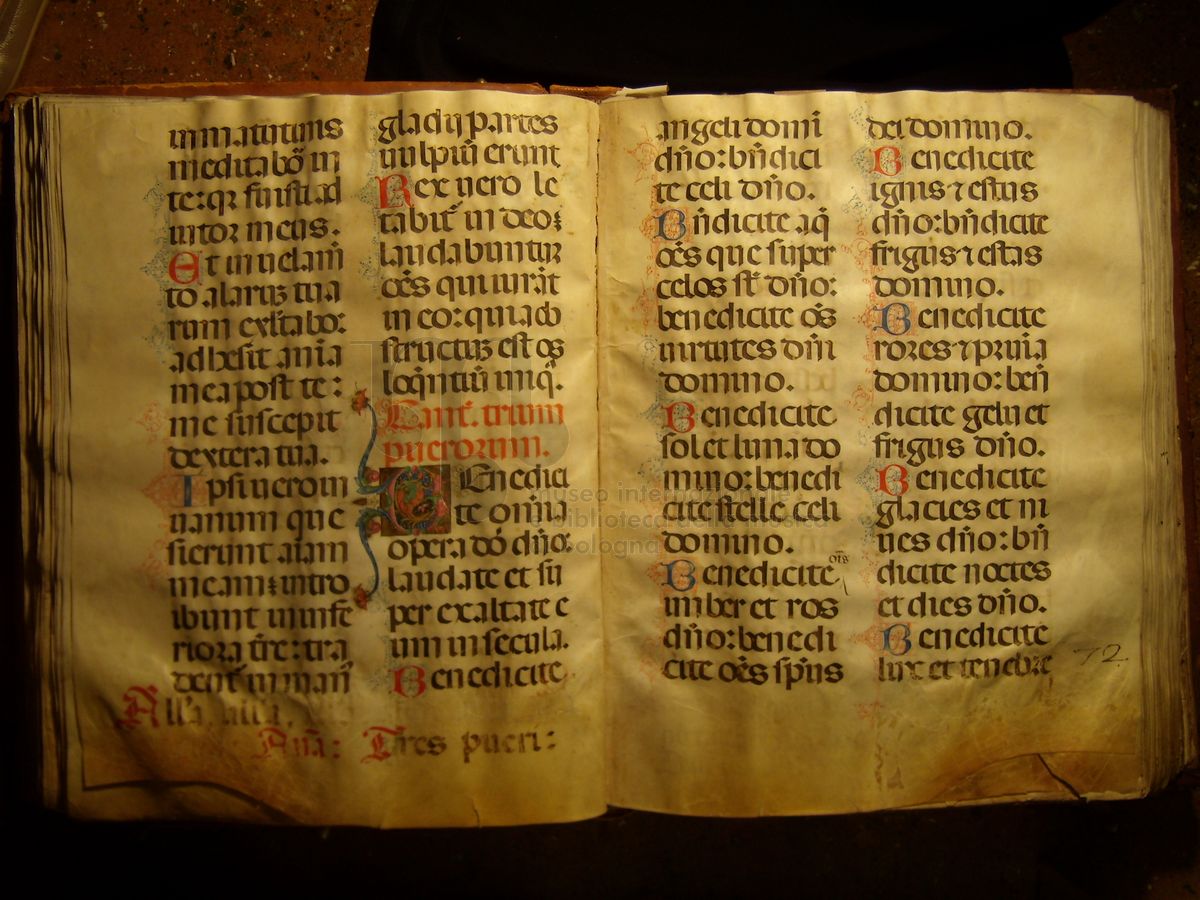 in matutinis
meditabō in
te: qꝛ fuisti ad
iutoꝛ meus.
Et in uelam̄
to alarꝫ tua
rum exl̄tabo:
adhesit an̄ia
mea post te:
me suscepit
dextera tua.
Ipsi uero in
uanum que
sierunt aīam
meam: intro
ibunt in infe
riora tr̄e: tra
dent᷑ in man̄
Alla, alla,
gladij partes
uulpiū erunt
Rex uero le
tabit᷑ in deo:
laudabuntur
oēs qui iurāt
in eo: qui a ob
structuꝫ est os
loq̄ntiū iniq̄.
Cant. trium
puerorum.
Benedici
te omīa
opera dō dn̄o:
laudate et su
per exaltate e
um in secula.
Benedicite
Ana: Tres pueri:
angeli domī
dn̄o: bn̄dici
te celi dn̄o.
Bn̄dicite aq̄
oēs que super
celos st̄ dn̄o:
benedicite oēs
uirtutes dn̄i
domino.
Benedicite
sol et luna do
mino: benedi
cite stelle celi
domino.
Benedicite oīs
imber et ros
dn̄o: benedi
cite oēs sp̄us
dei domino.
Benedicite
ignis ⁊ estus
dn̄o: bn̄dicite
frigus ⁊ estas
domino.
Benedicite
rores ⁊ pruīa
domino: ben̄
dicite gelu et
frigus dn̄o.
Benedicite
glacies et ni
ues dn̄o: bn̄
dicite noctes
et dies dn̄o.
Benedicite
lux et tenebre
72
museo internazionale
biblioteca della musica
bologna